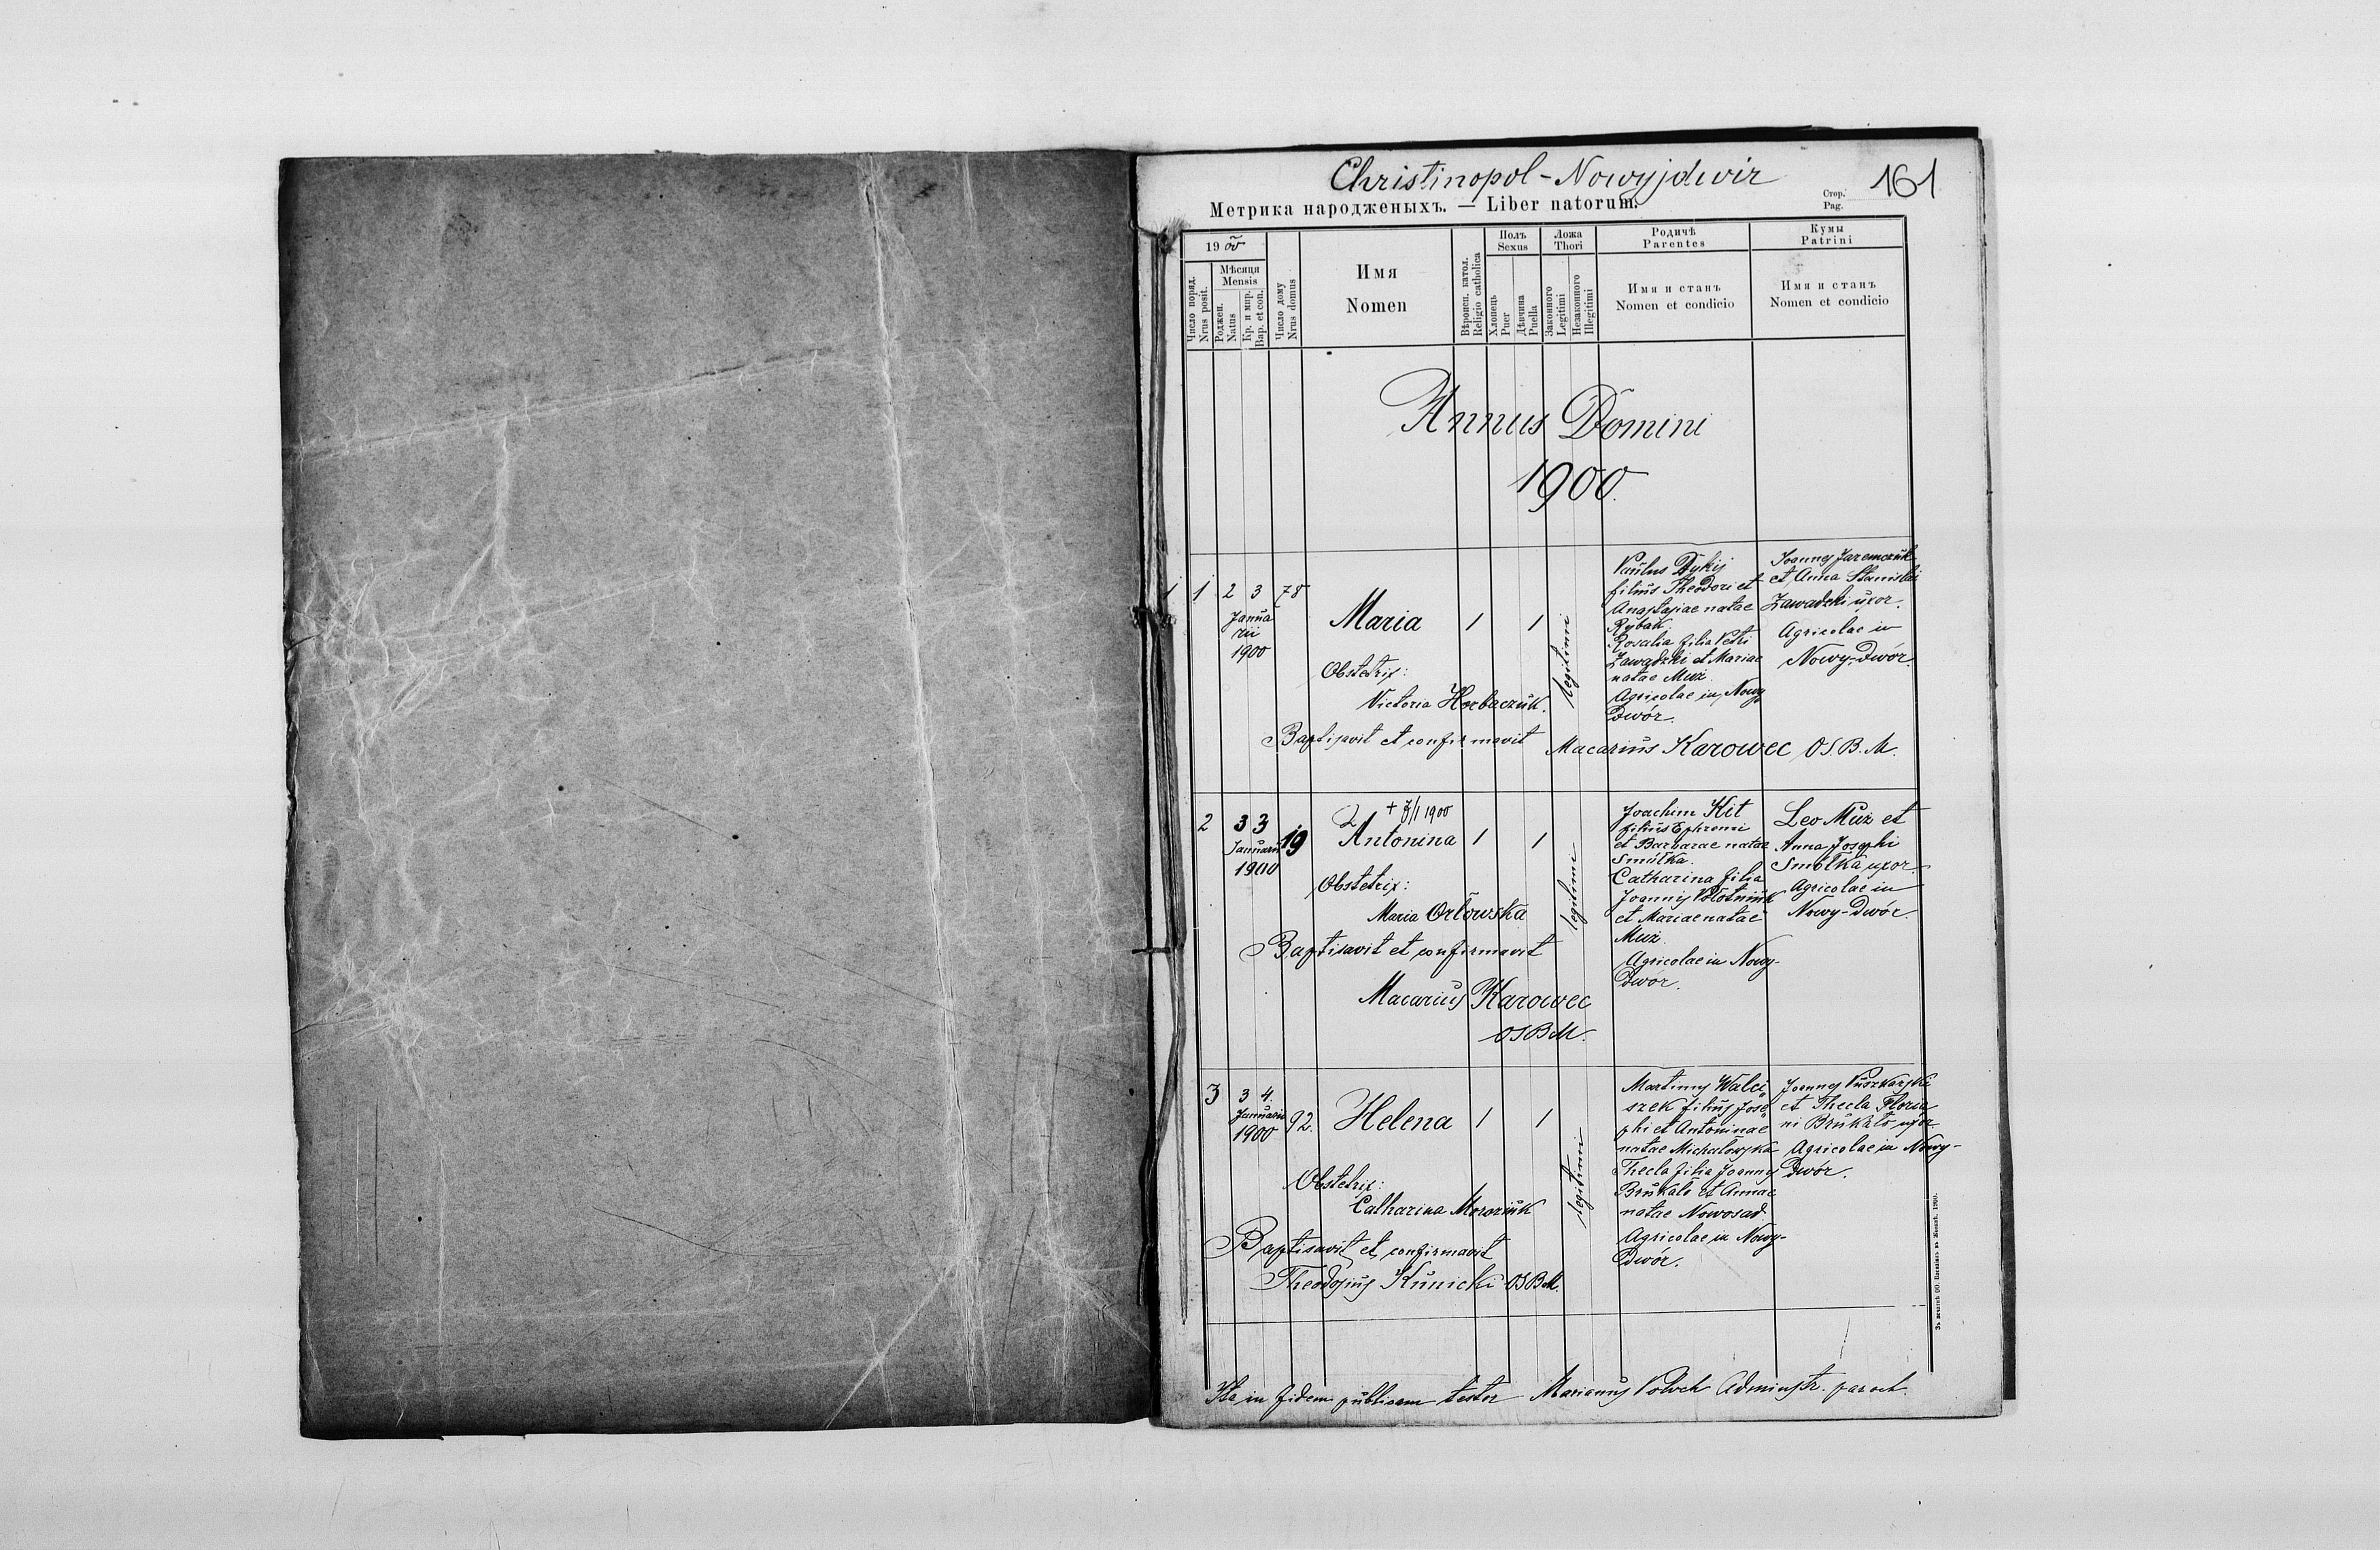 Christinopol - Nowyjdwir
161
Стор.
Pag.
Метрика народженыхъ. — Liber natorum.
1900
Число поряд.
Nrus posit.
Мѣсяця
Mensis
Роджен.
Natus
Кр. и мѵр.
Bap. et con.
Число дому
Nrus domus
Имя
Nomen
Вѣроисп. катол.
Religio catholica
Полъ
Sexus
Хлопець
Puer
Дѣвчина
Puella
Ложа
Thori
Законного
Legitimi
Незаконного
Illegitimi
Родичѣ
Parentes
Имя и станъ
Nomen et condicio
Кумы
Patrini
Имя и станъ
Nomen et condicio
Annus Domini
1900.
1 1 2 3 78
Janua
rii
1900
Maria 1 1
legitimi
Obstetrix:
Victoria Horbaczuk.
Paulus Dykij
filius Theodori et
Anastasiae natae
Rybak
Rosalia filia Petri
Zawadzki et Mariae
natae Muz.
Agricolae in Nowy
Dwór.
Joannes Jaremczuk
et Anna Stanislai
Zawadzki uxor.
Agricolae in
Nowy-Dwór.
Baptisavit et confirmavit Macarius Karowec O.S.B.M.
2 3 3 19
Januarii
1900
1900
Antonina 1 1
legitimi
Obstetrix:
Maria Orłowska
Baptisavit et confirmavit
Macarius Karowec
OSBM.
Joachim Kit
filius Ephremi
et Barbarae natae
Smulka.
Catharina filia
Joannis
et Mariae natae
Muz.
Agricolae in Nowy-
Dwór.
Leo Muz et
Anna Josephi
Smolka uxor.
Agricolae in
Nowy-Dwór.
3 3 4. 92.
Januarii
1900
Helena 1 1
legitimi
Obstetrix:
Catharina
Baptisavit et confirmavit
Theodosius Kunicki OSBM.
Martinus Walci
szek filius Jose
phi et Antoninae
natae Michałowska
Thecla filia Joannis
Brukało et Annae
natae Nowosad.
Agricolae in Nowy-
Dwór.
Joannes Puszkarski
et Thecla Floria
ni Brukało uxor
Agricolae in Nowy-
Dwór.
Ita in fidem publicam testor Marianus Administr. paroch.